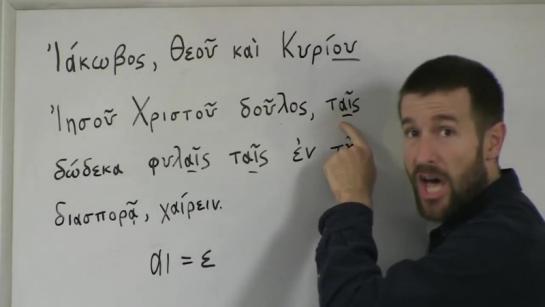 Ἰάκωβος, Θεοῦ καὶ Κυρίου
Ἰησοῦ Χριστοῦ δοῦλος, ταῖς
δώδεκα φυλαῖς ταῖς ἐν
διασπορᾷ, χαίρειν.
αι = ε